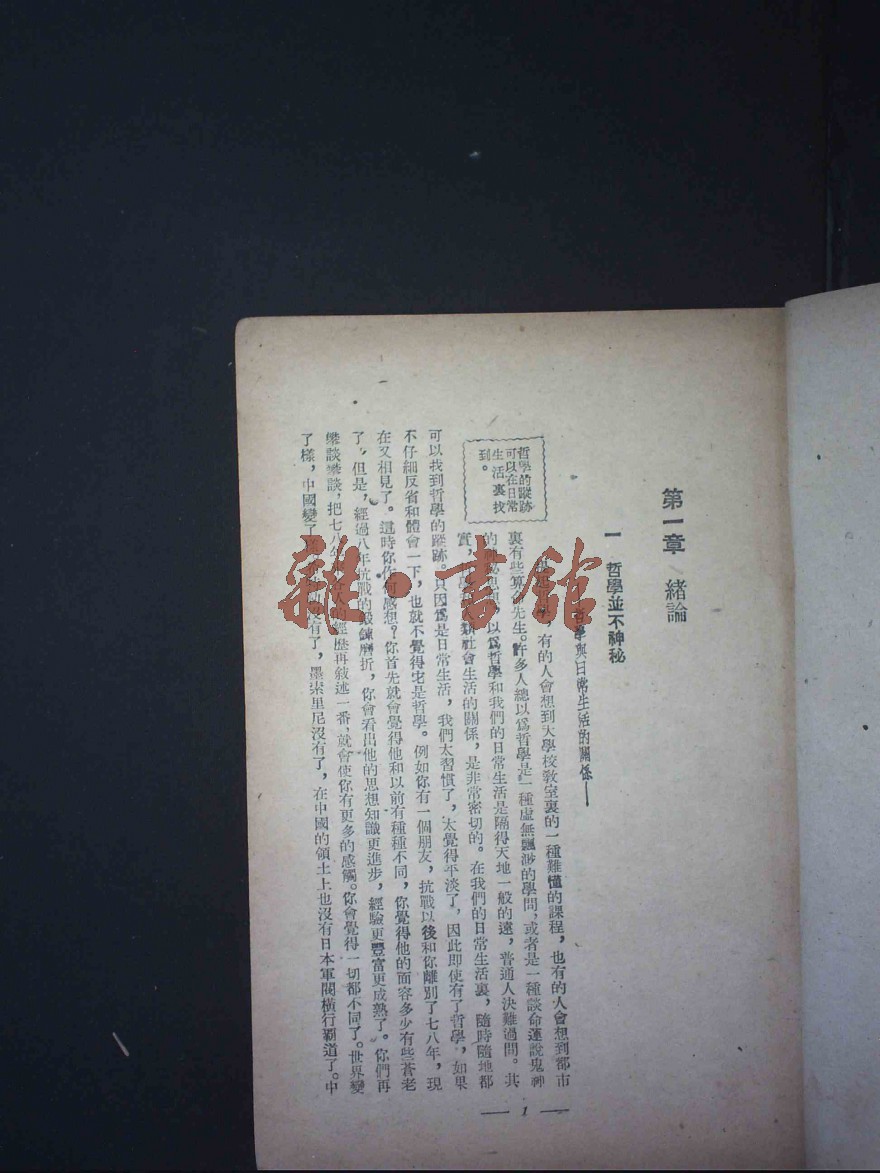 第一章 緒論
一 哲學並不神秘
哲學與日常生活的關係——
哲學的蹤跡
可以在日常
生活裏找
到。
有的人會想到大學校教室裏的一種難懂的課程，也有的人會想到都市
裏有些算命先生。許多人總以爲哲學是一種虛無飄渺的學問，或者是一種談命運說鬼神
的 以爲哲學和我們的日常生活是隔得天地一般的遠，普通人決難過問。其
實， 社會生活的關係，是非常密切的。在我們的日常生活裏，隨時隨地都
可以找到哲學的蹤跡。只因爲是日常生活，我們太習慣了，太覺得平淡了，因此卽使有了哲學，如果
不仔細反省和體會一下，也就不覺得它是哲學。例如你有一個朋友，抗戰以後和你離別了七八年，現
在又相見了。這時你作何感想？你首先就會覺得他和以前有種種不同，你覺得他的面容多少有些蒼老
了，但是，經過八年抗戰的鍛鍊磨折，你會看出他的思想知識更進步，經驗更豐富更成熟了。你們再
樂談樂談，把七八年 人的經歷再敍述一番，就會使你有更多的感觸。你會覺得一切都不同了。世界變
了樣，中國變了樣， 沒有了，墨索里尼沒有了，在中國的領土上也沒有日本軍閥橫行霸道了。中
— 1 —
雜·書館